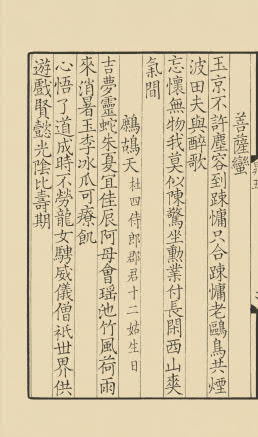 菩薩蠻
玉京不許塵容到疎慵只合疎慵老鷗鳥共煙
波田夫與醉歌
忘懷無物我莫似陳驚坐勲業付長閑西山爽
氣間
鷓鴣天 杜四侍郎郡君十二姑生日
吉夢靈蛇朱夏宜佳辰阿母會瑶池竹風荷雨
來消暑玉李冰瓜可療飢
心悟了道成時不勞龍女騁威儀僧祇世界供
遊戲賢懿光陰比壽期